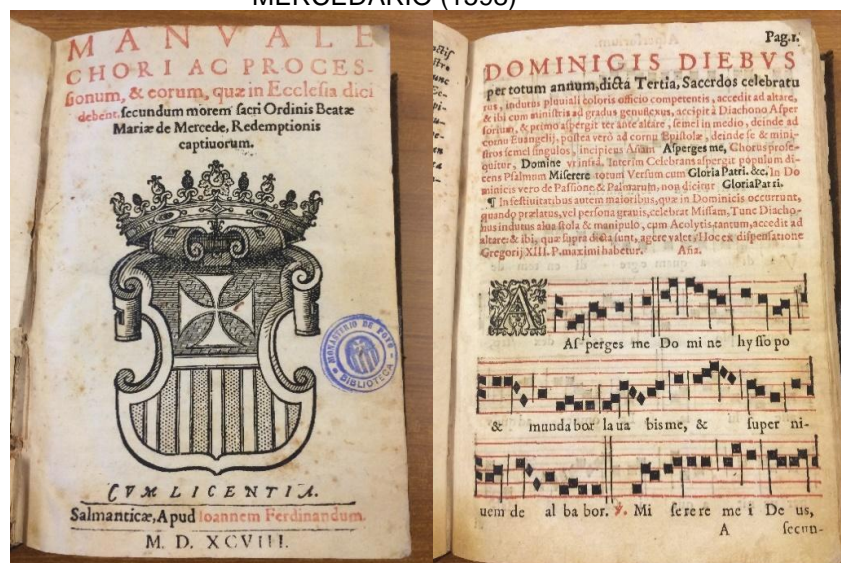 MERCEDARIO (1598)
MANVALE
CHORI AC PROCES-
ſionum, & eorum, quæ in Eccleſia dici
debent. ſecundum morem ſacri Ordinis Beatæ
Mariæ de Mercede, Redemptionis
captiuorum.
MONASTERIO DE POYO
BIBLIOTECA
CVM LICENTIA.
Salmanticæ, Apud Ioannem Ferdinandum.
M. D. XCVIII.
Pag.1.
DOMINIGIS DIEBVS
per totum annum, dicta Tertia, Sacerdos celebratu
rus, indutus pluuiali coloris officio competentis, accedit ad altare,
& ibi cum miniſtris ad gradus genuflexus, accipit à Diachono Aſper
ſorium, & primo aſpergit ter ante altare, ſemel in medio, deinde ad
cornu Euangelij, poſtea verò ad cornu Epiſtolæ, deinde ſe & mini-
ſtros ſemel ſingulos, incipiens Anam Aſperges me, Chorus proſe-
quitur, Domine vt infrà. Interim Celebrans aſpergit populum di-
cens Pſalmum Miſerere totum Verſum cum Gloria Patri. &c. In Do
minicis vero de Paſsione & Palmarum, non dicitur GloriaPatri.
¶ In feſtiuitatibus autem maioribus, quæ in Dominicis occurrunt,
quando prælatus, vel perſona grauis, celebrat Miſſam, Tunc Diacho-
nus indutus alua ſtola & manipulo, cum Acolytis tantum, accedit ad
altare: & ibi, quæ ſupra dicta ſunt, agere valet, Hoc ex diſpenſatione
Gregorij XIII. P. maximi habetur. Aña.
A
Aſ perges me Do mi ne hy ſſo po
& munda bor laua bis me, & ſuper ni-
uem de al ba bor. ℣. Mi ſe re re me i De us,
A ſecun-